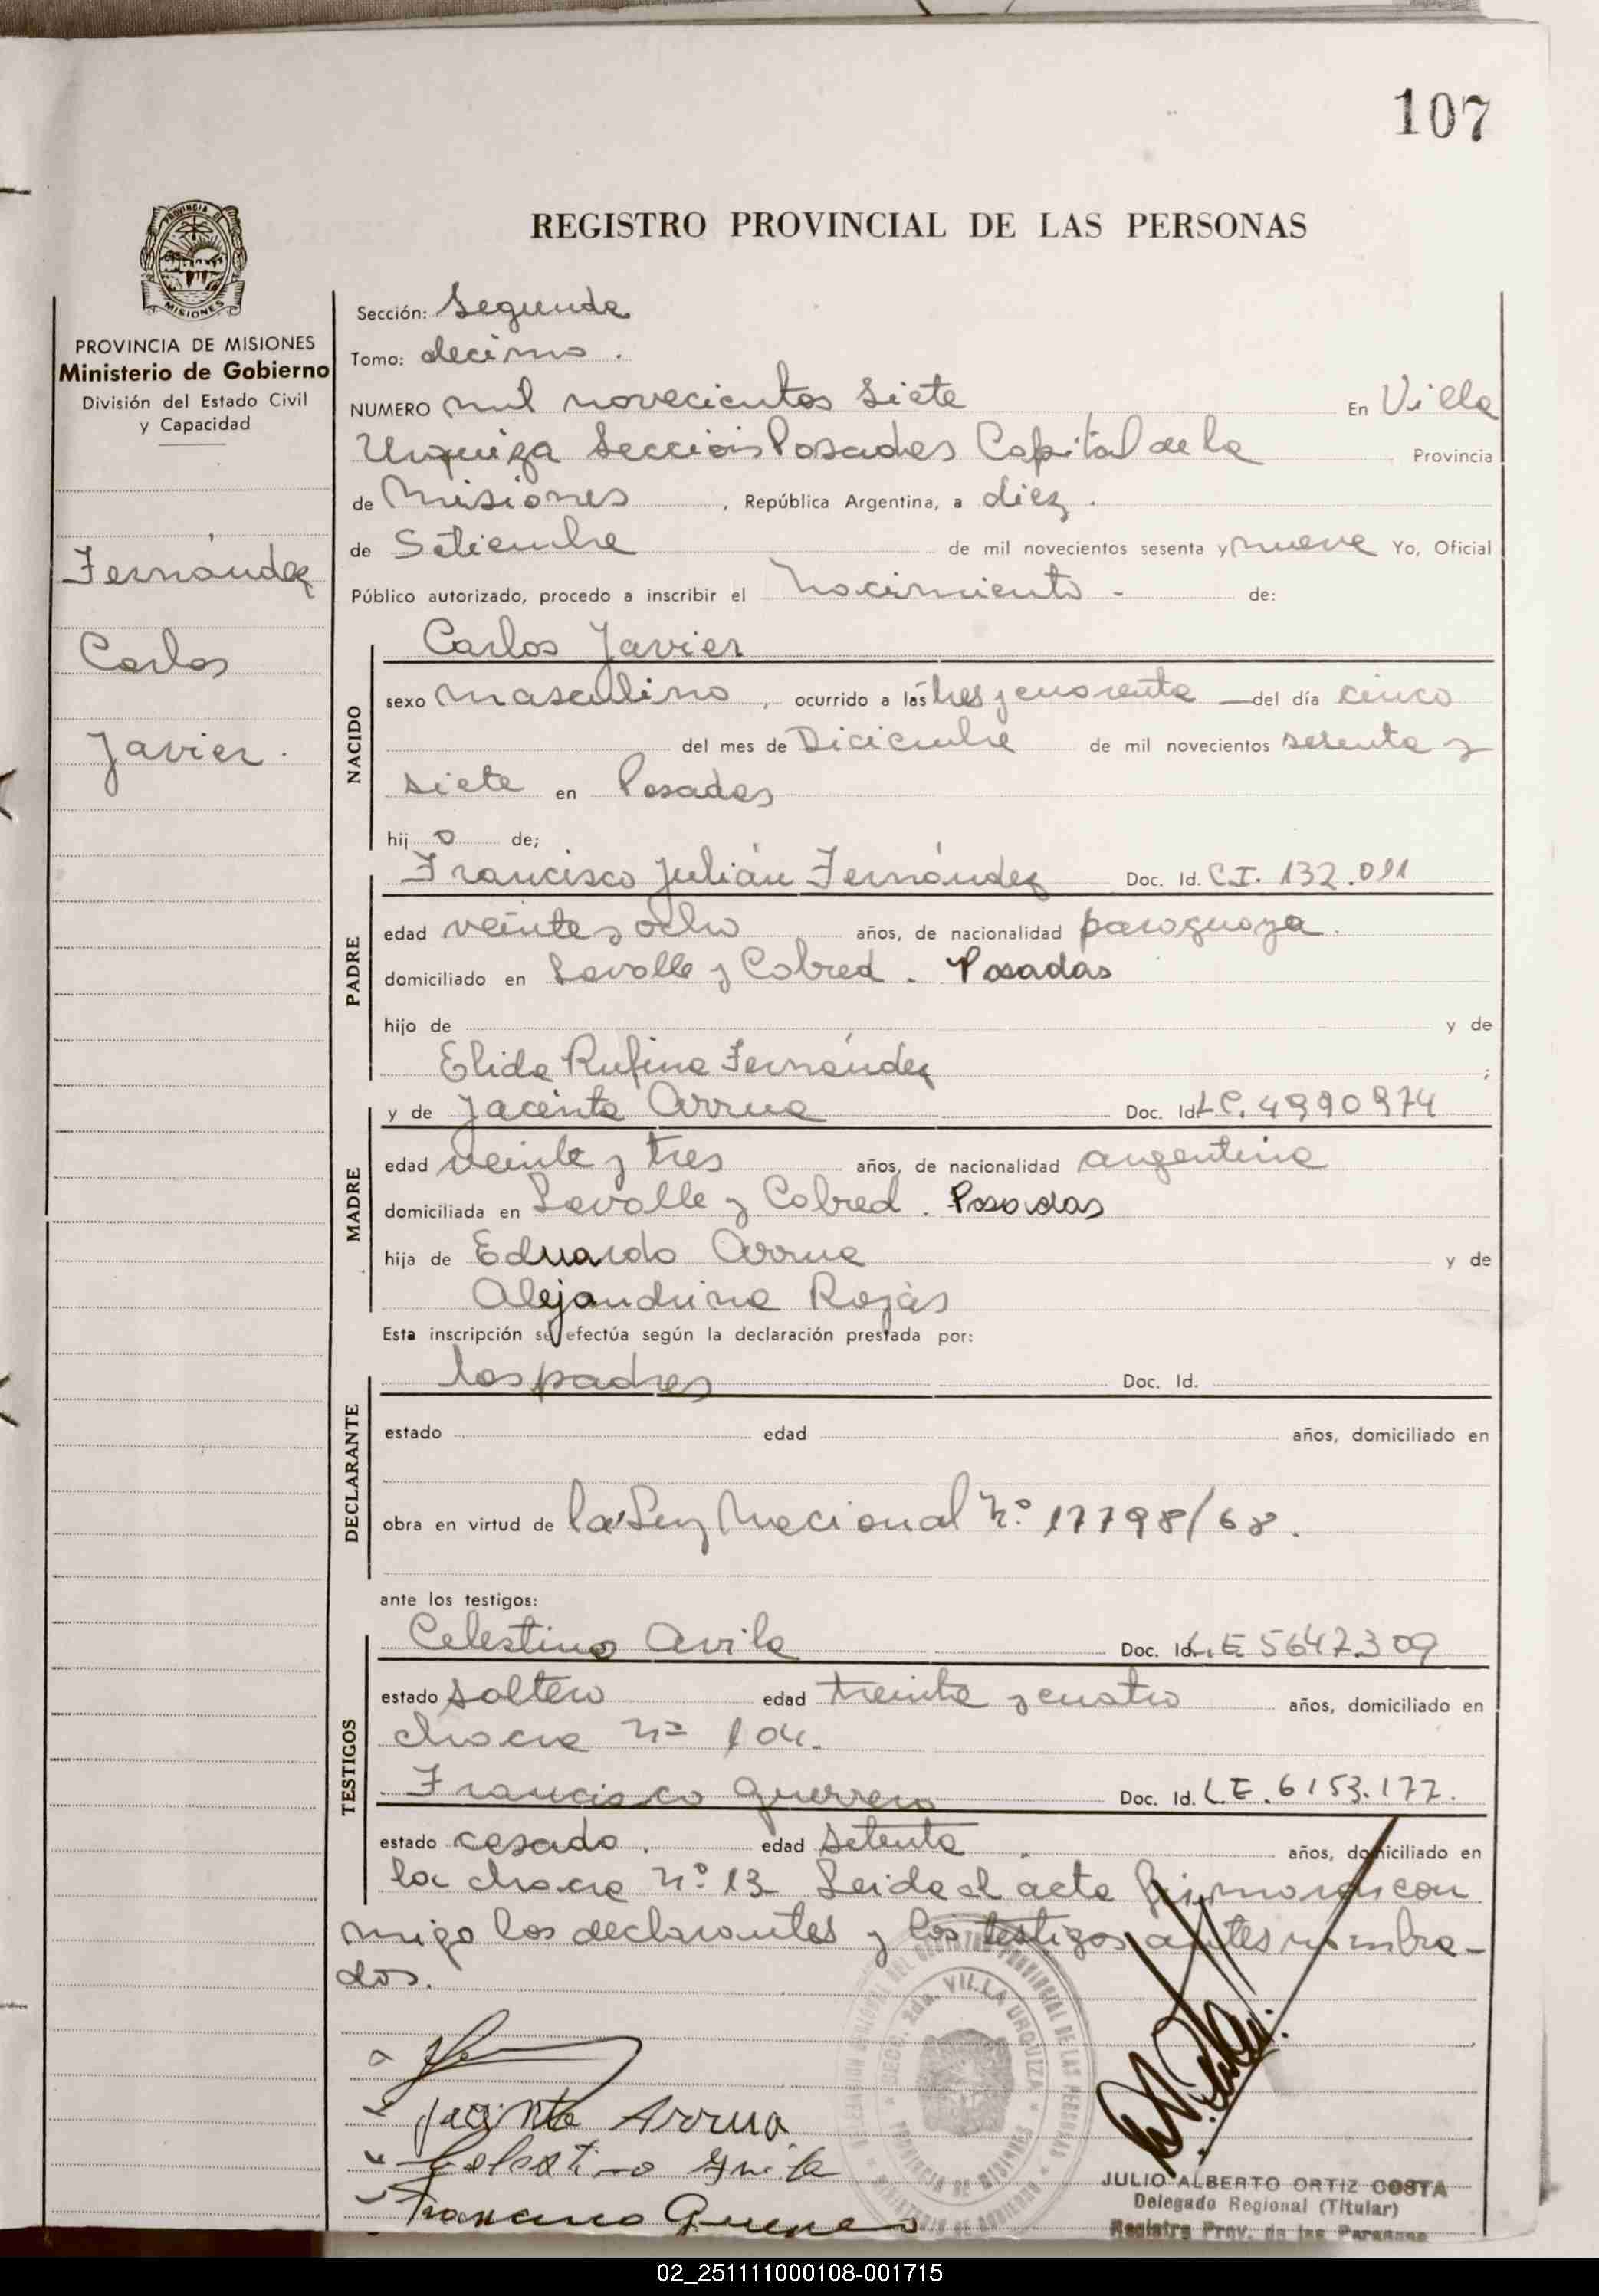 107
REGISTRO PROVINCIAL DE LAS PERSONAS
PROVINCIA DE MISIONES
Ministerio de Gobierno
División del Estado Civil
y Capacidad
Fernández
Carlos
Javier.
Sección: Segunda
Tomo: decimo.
NUMERO mil novecientos siete En Villa
Urquiza Sección Posadas Capital de la Provincia
de Misiones, República Argentina, a diez.
de Setiembre de mil novecientos sesenta y nueve Yo, Oficial
Público autorizado, procedo a inscribir el Nacimiento - de:
NACIDO
Carlos Javier
sexo masculino, ocurrido a las tres y cuarenta del día cinco
del mes de Diciembre de mil novecientos sesenta y
siete en Posadas
hijo de;
PADRE
Francisco Julián Fernández Doc. Id. C.I. 132.091
edad veinte y ocho años, de nacionalidad paraguaya.
domiciliado en Lavalle y Cobred. Posadas
hijo de y de
Elida Rufina Fernández ;
MADRE
y de Jacinta Arrua Doc. Id. L.C. 4990974
edad veinte y tres años, de nacionalidad argentina
domiciliada en Lavalle y Cobred. Posadas
hija de Eduardo Arrua y de
Alejandrina Rojas
Esta inscripción se efectúa según la declaración prestada por:
DECLARANTE
los padres Doc. Id.
estado edad años, domiciliado en
obra en virtud de la Ley Nacional Nº 17798/68.
ante los testigos:
TESTIGOS
Celestino Avila Doc. Id. L.E 5647309
estado soltero edad treinta y cuatro años, domiciliado en
chacra nº 104.
Francisco Guerrero Doc. Id. L.E. 6153.177.
estado casado. edad setenta años, domiciliado en
la chacra Nº 13 Leida el acta firmaron con
migo los declarantes y los testigos antes nombra-
dos.
Jacinta Arrua
Celestino Avila
Francisco Guerrero
SECC. 2da. VILLA URQUIZA
PROVINCIA DE MISIONES
JULIO ALBERTO ORTIZ COSTA
Delegado Regional (Titular)
Registro Prov. de las Personas
02_251111000108-001715